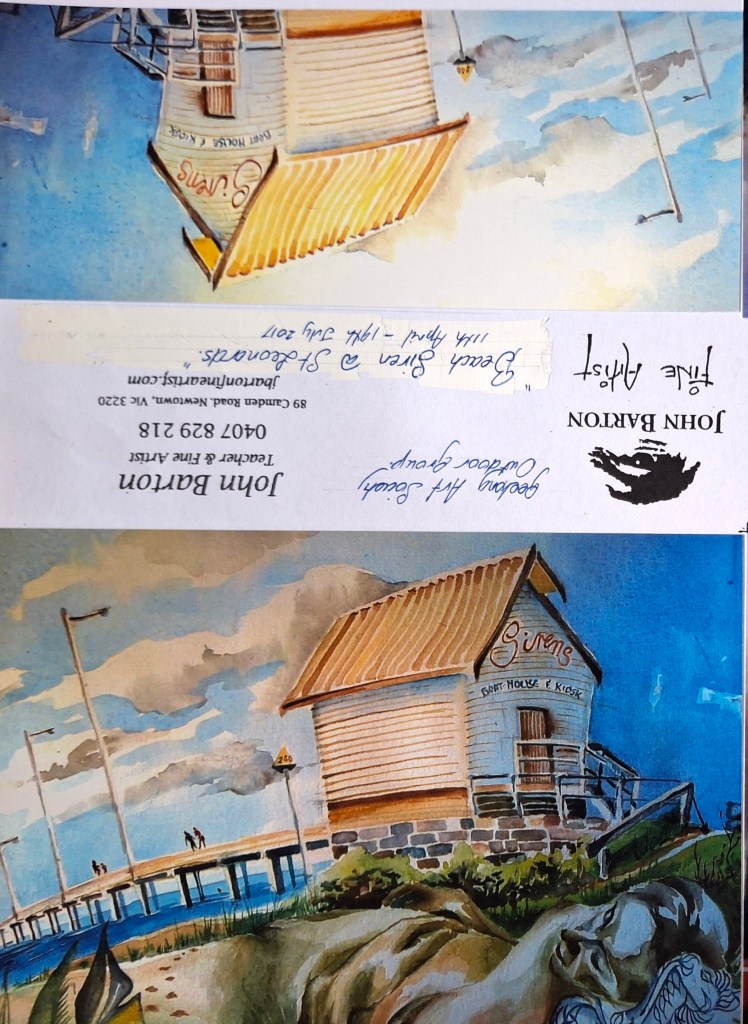 Sirens
BOAT HOUSE & KIOSK
JOHN BARTON
FINE ARTIST
Geelong Art Society
Outdoor group.
John Barton
Teacher & Fine Artist
0407 829 218
89 Camden Road, Newtown, Vic 3220
jbartonfineartist.com
"Beach Siren @ St Leonards."
11th April - 19th July 2017
Sirens
BOAT HOUSE & KIOSK